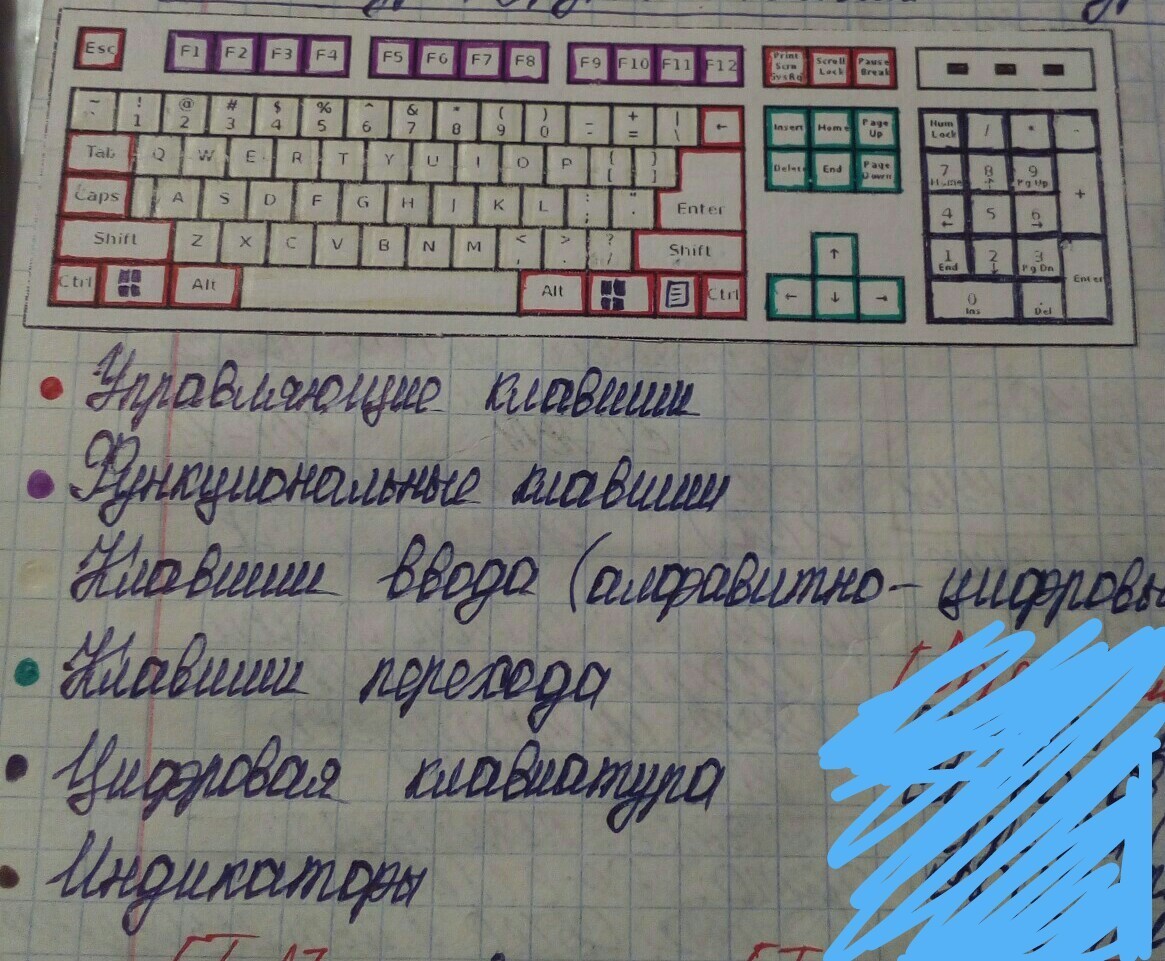 Esc F1 F2 F3 F4 F5 F6 F7 F8 F9 F10 F11 F12 Print Scrn SysRq Scroll Lock Pause Break
~ ! @ # $ % ^ & * ( ) _ + |
` 1 2 3 4 5 6 7 8 9 0 - = \ ← Insert Home Page Up Num Lock / * -
Tab Q W E R T Y U I O P { [ } ] Delete End Page Down 7 Home 8 ↑ 9 Pg Up +
Caps A S D F G H J K L : ; " ' Enter 4 ← 5 6 →
Shift Z X C V B N M < , > . ? / Shift ↑ 1 End 2 ↓ 3 Pg Dn Enter
Ctrl Alt Alt Ctrl ← ↓ → 0 Ins . Del
Управляющие клавиши
Функциональные клавиши
Клавиши ввода (алфавитно-цифровы
Клавиши перехода
Цифровая клавиатура
Индикаторы